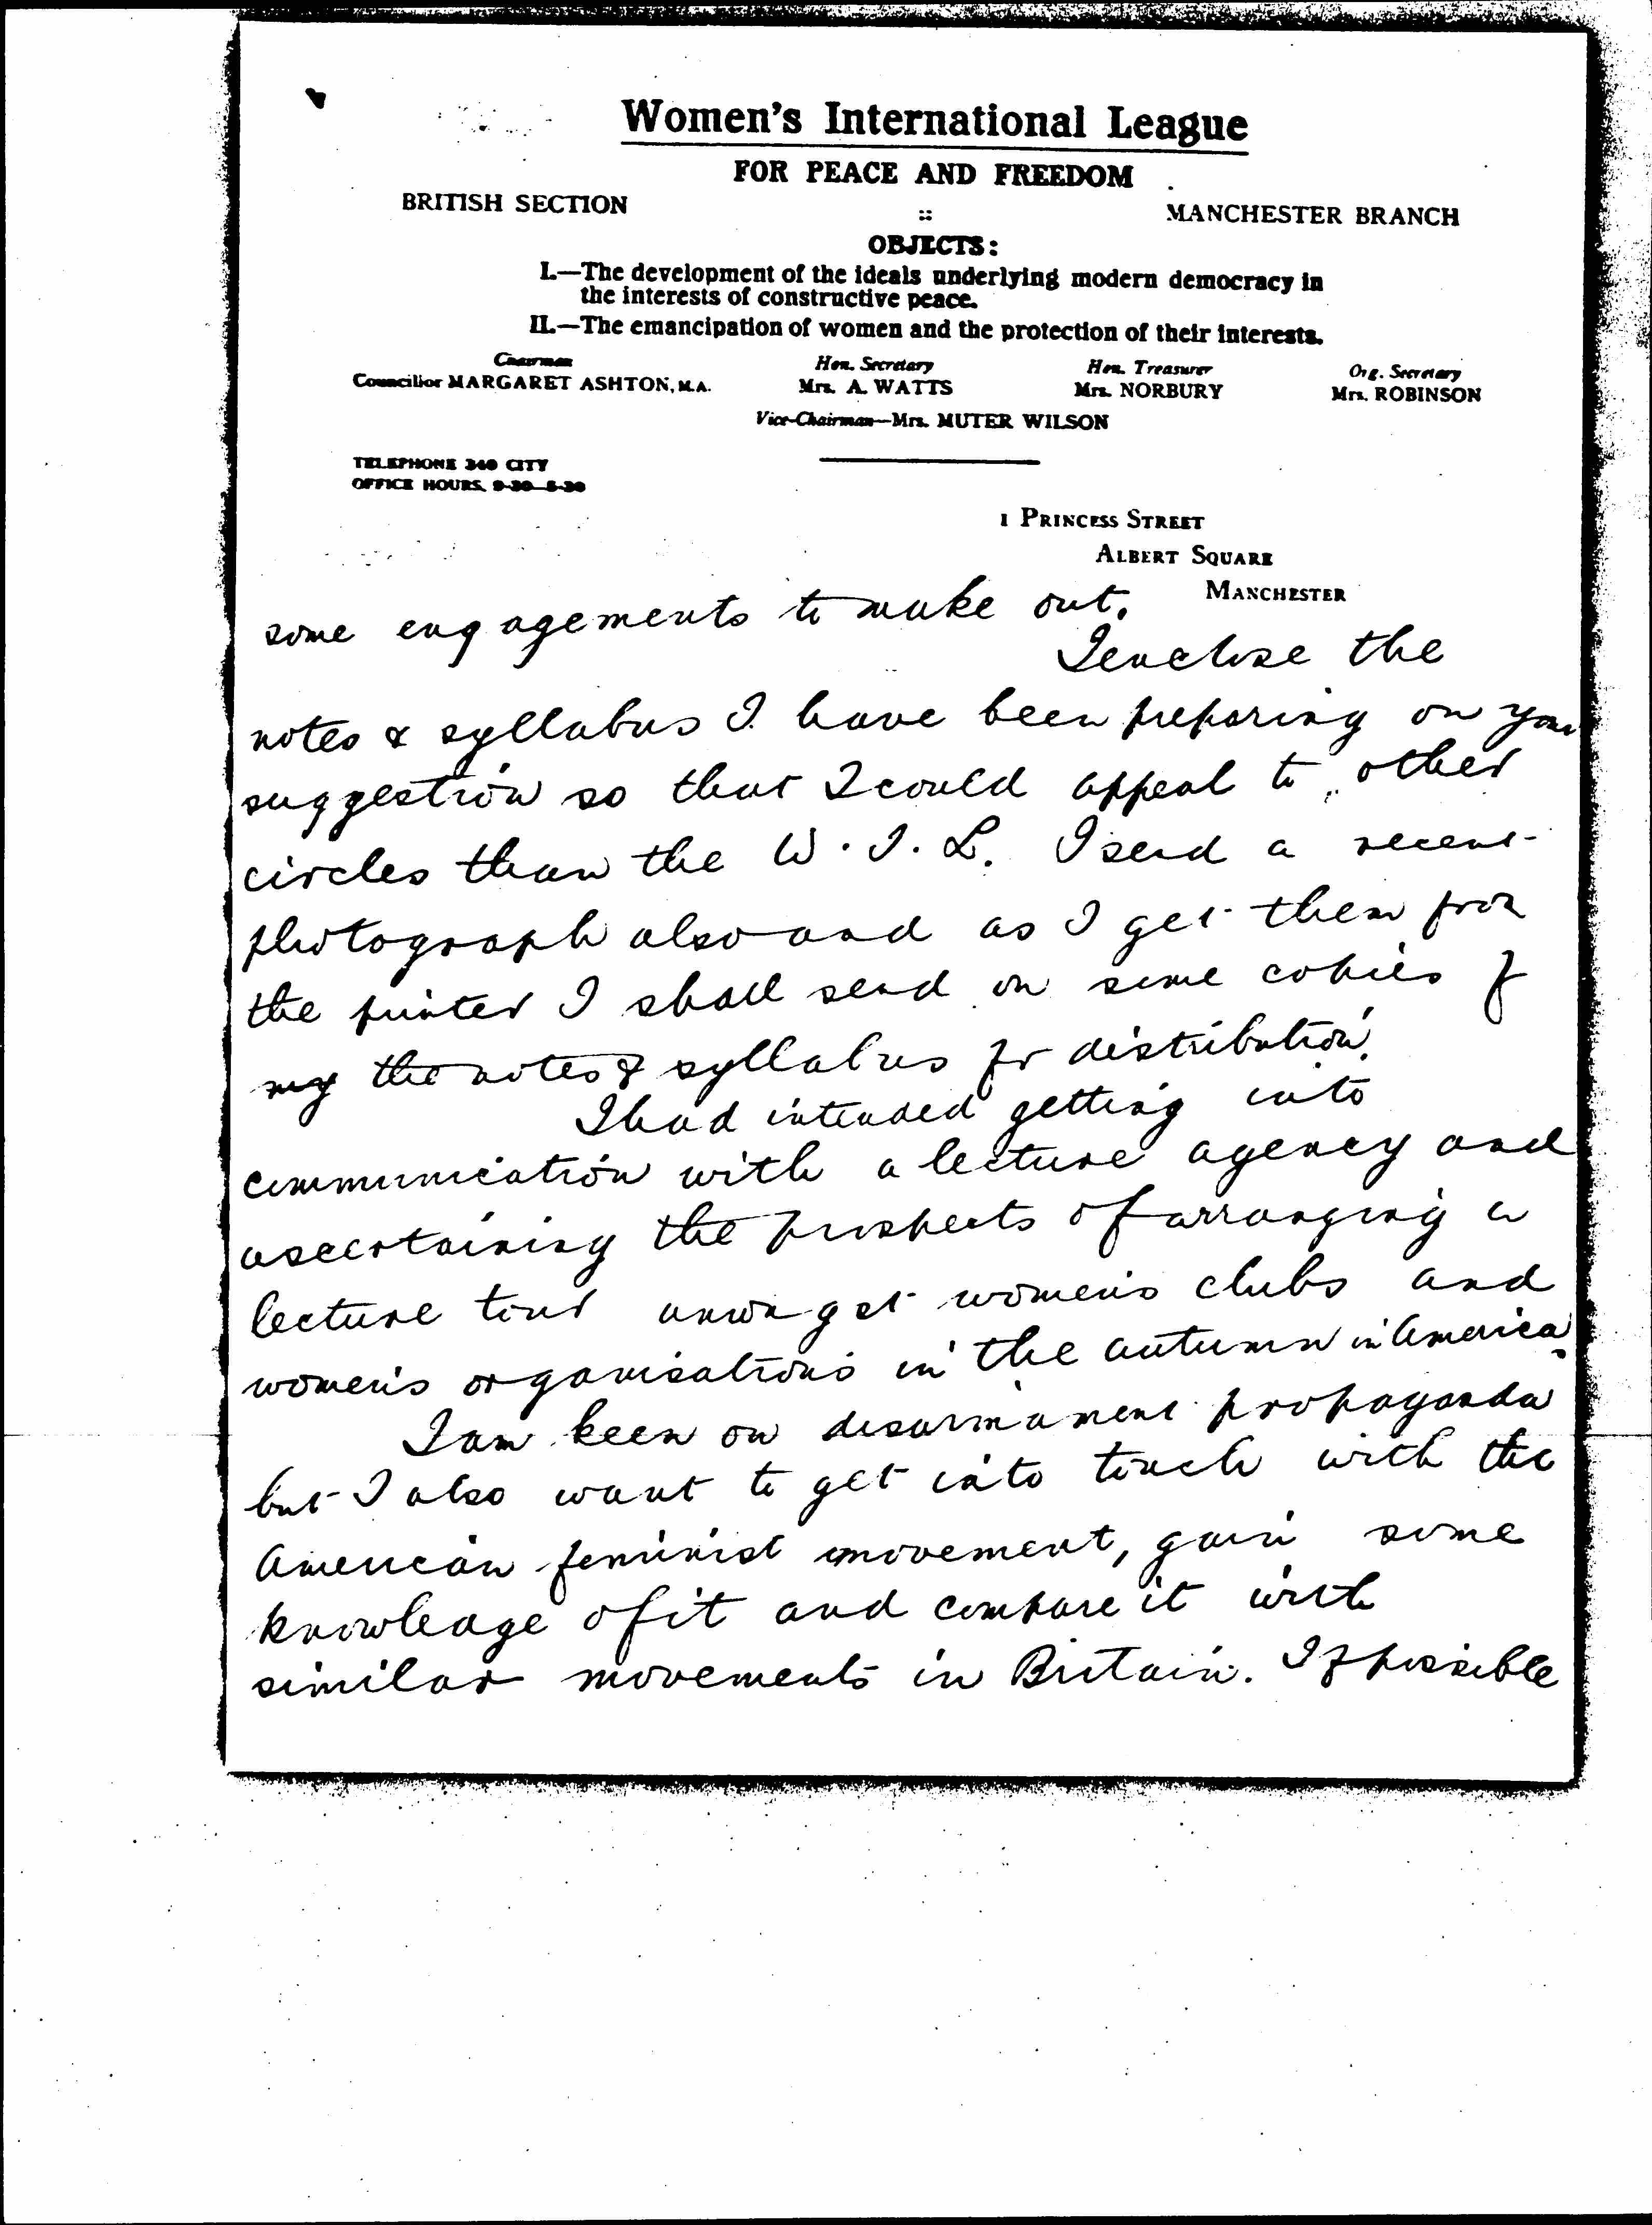 Women's International League
FOR PEACE AND FREEDOM
BRITISH SECTION :: MANCHESTER BRANCH
OBJECTS:
I.—The development of the ideals underlying modern democracy in
the interests of constructive peace.
II.—The emancipation of women and the protection of their interests.
Chairman Hon. Secretary Hon. Treasurer Org. Secretary
Councillor MARGARET ASHTON, M.A. Mrs. A. WATTS Mrs. NORBURY Mrs. ROBINSON
Vice-Chairman—Mrs. MUTER WILSON
TELEPHONE 340 CITY
OFFICE HOURS, 9-30—5-30
1 PRINCESS STREET
ALBERT SQUARE
MANCHESTER
some engagements to make out.
I enclose the
notes & syllabus I have been preparing on your
suggestion so that I could appeal to other
circles than the W.I.L. I send a recent
photograph also and as I get them from
the printer I shall send on some copies of
my the notes & syllabus for distribution.
I had intended getting into
communication with a lecture agency and
ascertaining the prospects of arranging a
lecture tour amongst women's clubs and
women's organisations in the autumn in America.
I am keen on disarmament propaganda
but I also want to get into touch with the
American feminist movement, gain some
knowledge of it and compare it with
similar movements in Britain. If possible